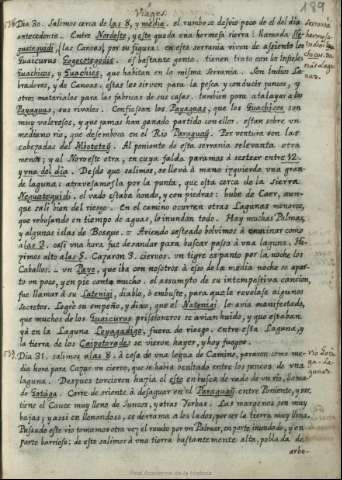 Viages.
189
Dia 30. Salimos cerca de las 8, y media. el rumbo se desvio poco de el del dia
antecedente. Entre Nordeste, y este queda una hermosa sierra: llamada
las Canoas por su figura: en esta serranía viven de asiento los
Guaicurus es bastante gente. tienen trato con los Infieles
Guachicos, y que habitan en la misma Serrania. Son Indios La-
bradores, y de Canoas. estas les sirven para la pesca y conducir juncos, y
otros materiales para las fabricas de sus casas. tambien para atalayar a los
Payaguas, sus rivales. Confiessan los Payaguas, que los Guachicos son
muy valerosos, y que jamas han ganado partido con ellos. estan sobre un
mediano rio, que desemboca en el Rio Paraguaij. Por ventura son las
cabezadas del Mbotetei. Al poniente de esta serrania se levanta otra
menor; y al Noroeste otra, en cuya falda paramos á sestear entre 12.
y una del dia. Desde que salimos, se llevó á mano izquierda una gran-
de laguna: atravesamosla por la punta, que esta cerca de la sierra
el vado estaba hondo, y con piedras: hube de Caer, aun-
que sali bien del riesgo. En el camino ocurren otras Lagunas menores,
que rebosando en tiempo de aguas, lo inundan todo. Hay muchas Palmas,
y algunas islas de Bosque. Aviendo sesteado bolvimos á caminar como
á las 2. casi una hora fue desandar para buscar passo á una laguna. Hi-
zimos alto a las 5. Cazaron 3. ciervos. un tigre espantó por la noche los
Caballos. un Paye, que iba con nosotros á eso de la media noche se apar-
to un poco, y en pie cantó mucho. el assumpto de su intempestiva cancion,
fue llamar á su diablo, ó embuste, para que le revelasse algunos
secretos. Logró su empeño, y dixo, que el le avia manifestado,
que muchos de los Guaicurus prisioneros se avian huido, y que estaban
yá en la Laguna fuera de riesgo. entre esta Laguna, y
la tierra de los se vieron hayer, y hoy fuegos.
Dia 31. salimos a las 8. á cosa de una legua de Camino, pararon como me-
dia hora para Cazar un ciervo, que se habia ocultado entre los juncos de una
laguna. Despues torcieron hazia el oeste en busca de vado de un rio, llama-
do Corre de oriente á desaguar en el Paraguaij entre Poniente, y sur.
tiene el Cauce muy lleno de Juncos, y otras Yerbas. Las margenes son muy
bajas; y assi en llenandose, se derrama a los lados, por ser la tierra muy llana.
Passado este rio tomamos otra vez el rumbo por un Palmar, en parte inundado, y en
parte barrioso: de este salimos á una tierra bastantemente alta, poblada de
arbo-